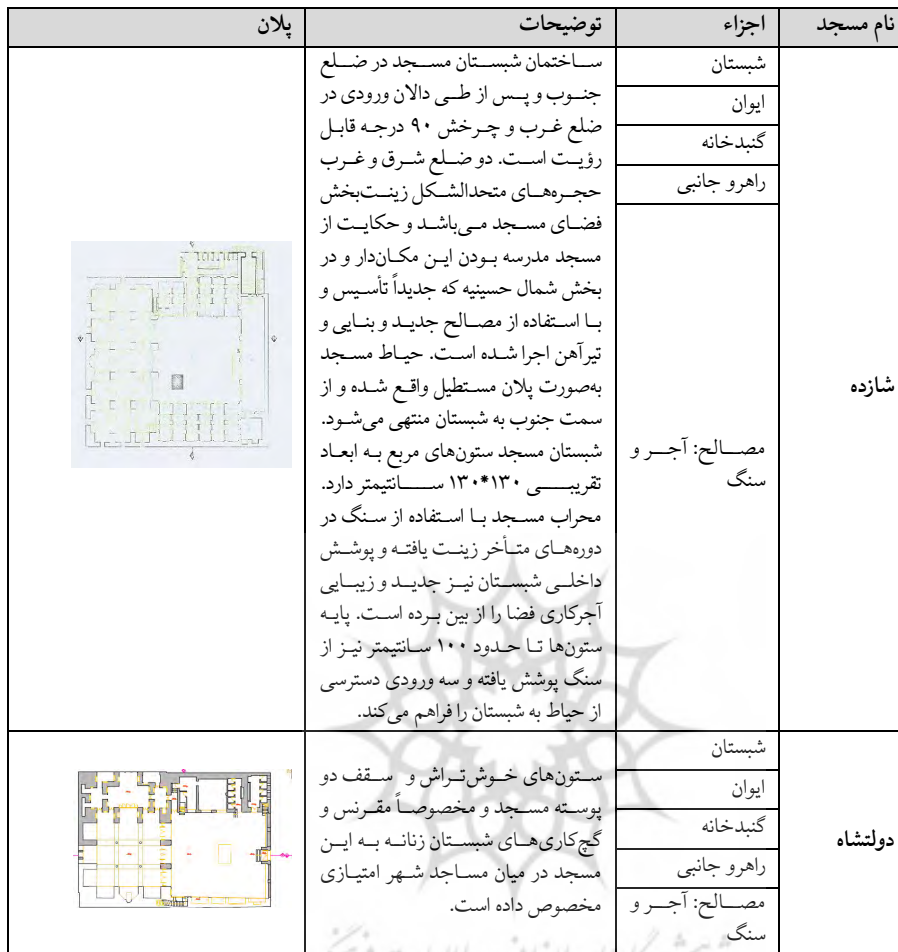 نام مسجد
اجزاء
توضیحات
پلان
شازده
شبستان
ایوان
گنبدخانه
راهرو جانبی
مصالح: آجر و
سنگ
ساختمان شبستان مسجد در ضلع
جنوب و پس از طی دالان ورودی در
ضلع غرب و چرخش ۹۰ درجه قابل
رؤیت است. دو ضلع شرق و غرب
حجره‌های متحدالشکل زینت‌بخش
فضای مسجد می‌باشد و حکایت از
مسجد مدرسه بودن این مکان‌دار و در
بخش شمال حسینیه که جدیداً تأسیس و
با استفاده از مصالح جدید و بنایی و
تیرآهن اجرا شده است. حیاط مسجد
به‌صورت پلان مستطیل واقع شده و از
سمت جنوب به شبستان منتهی می‌شود.
شبستان مسجد ستون‌های مربع به ابعاد
تقریبی ۱۳۰*۱۳۰ سانتیمتر دارد.
محراب مسجد با استفاده از سنگ در
دوره‌های متأخر زینت یافته و پوشش
داخلی شبستان نیز جدید و زیبایی
آجرکاری فضا را از بین برده است. پایه
ستون‌ها تا حدود ۱۰۰ سانتیمتر نیز از
سنگ پوشش یافته و سه ورودی دسترسی
از حیاط به شبستان را فراهم می‌کند.
دولتشاه
شبستان
ایوان
گنبدخانه
راهرو جانبی
مصالح: آجر و
سنگ
ستون‌های خوش‌تراش و سقف دو
پوسته مسجد و مخصوصاً مقرنس و
گچ‌کاری‌های شبستان زنانه به این
مسجد در میان مساجد شهر امتیازی
مخصوص داده است.